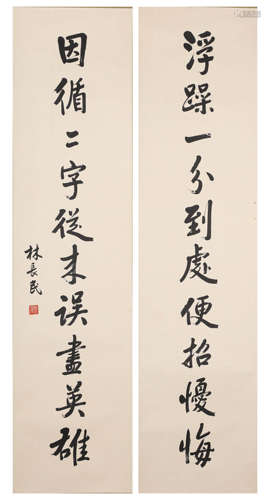 浮躁一分到處便招懮悔
因循二字從来误盡英雄
林長民